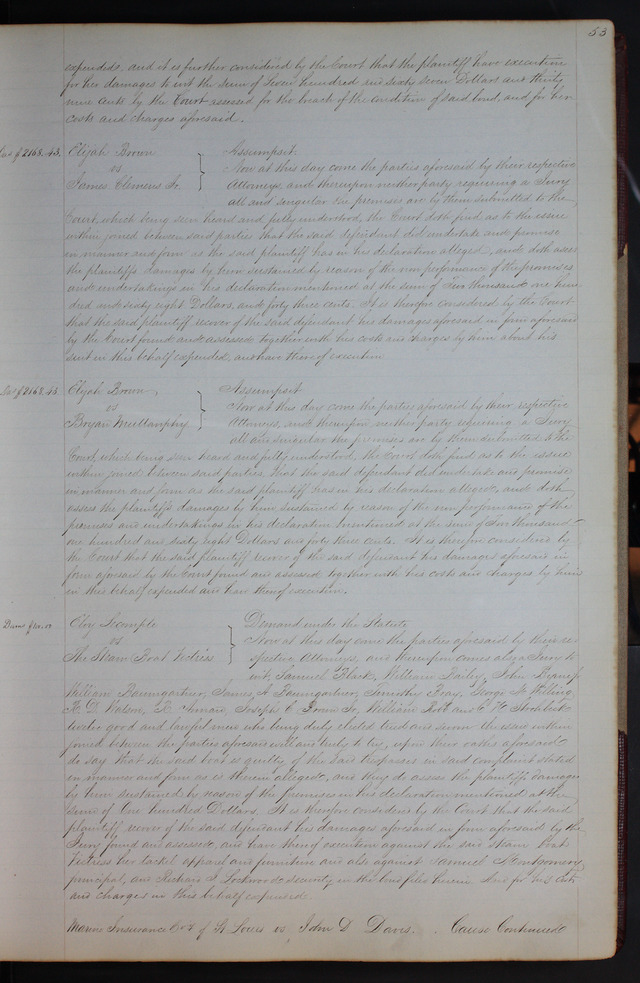 53
expended, and it is further considered by the Court that the plaintiff have execution
for her damages to wit the sum of Seven hundred and sixty seven Dollars and thirty
nine cents by the Court assessed for the breach of the condition of said bond, and for her
costs and charges aforesaid.
2168.43. Elijah Brown } Assumpsit.
vs Now at this day come the parties aforesaid by their respective
James Clemens Jr. Attorneys, and thereupon neither party requiring a Jury
all and singular the premises are by them submitted to the
Court, which being seen heard and fully understood, the Court doth find as to the issue
within joined between said parties that the said defendant did undertake and promise
in manner and form as the said plaintiff has in his declaration alleged, and doth assess
the plaintiffs damages by him sustained by reason of the non performance of the promises
and undertakings in his declaration mentioned at the sum of Two thousand one hun
dred and sixty eight Dollars, and forty three cents. It is therefore considered by the Court
that the said plaintiff recover of the said defendant his damages aforesaid in form aforesaid
by the Court found and assessed together with his costs and charges by him about his
suit in this behalf expended, and have thereof execution
2168.43 Elijah Brown, } Assumpsit
vs Now at this day come the parties aforesaid by their respective
Bryan Mullanphy Attorneys, and thereupon neither party requiring a Jury
all and singular the premises are by them submitted to the
Court, which being seen heard and fully understood, the Court doth find as to the issue
within joined between said parties, that the said defendant did undertake and promise
in manner and form as the said plaintiff has in his declaration alleged, and doth
assess the plaintiffs damages by him sustained by reason of the non performance of the
promises and undertakings in his declaration mentioned at the sum of Two thousand
one hundred and sixty eight Dollars and forty three cents. It is therefore considered by
the Court that the said plaintiff recover of the said defendant his damages aforesaid in
form aforesaid by the Court found and assessed together with his costs and charges by him
in this behalf expended and have thereof execution.
vs } Demand under the Statute
The Steam Boat Vertress Now at this day come the parties aforesaid by their re-
spective Attorneys, and thereupon comes also a Jury to
wit, Samuel Black, William John
William Baumgartner, James A Baumgartner, Timothy George W
D. Watson, Joseph C Jr, William Root and
twelve good and lawful men who being duly elected tried and sworn the issue within
joined between the parties aforesaid well and truly to try, upon their oaths aforesaid
do say that the said boat is guilty of the said trespasses in said complaint stated
in manner and form as is therein alleged, and they do assess the plaintiffs damages
by him sustained by reason of the premises in his declaration mentioned at the
sum of One hundred Dollars. It is therefore considered by the Court that the said
plaintiff recover of the said defendant his damages aforesaid in form aforesaid by the
Jury found and assessed, and have thereof execution against the said Steam boat
her tackel apparel and furniture and also against Samuel Montgomery
principal, and Richard J Lockwood security in the bond filed herein. And for his costs
and charges in this behalf expended.
Marine Insurance Co of St Louis vs John D Davis. Cause Continued